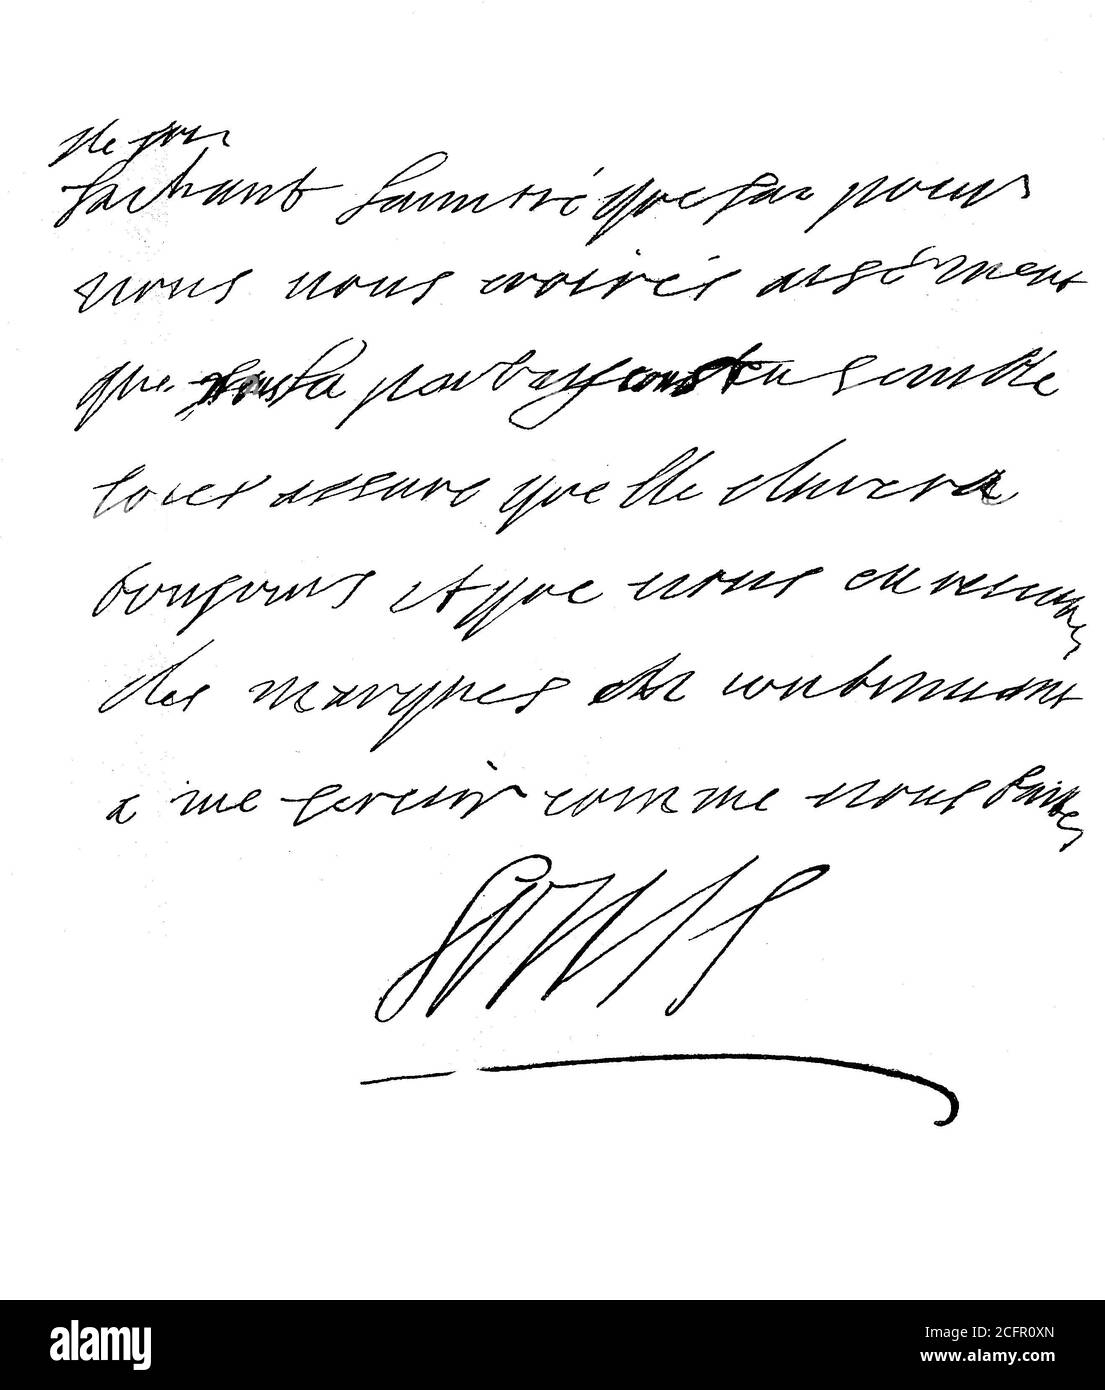 sachant lamitié que jai pour
vous vous croirés aisément
que la part
soies assure quelle durera
tousjours et que vous en
des marques en continuant
a me servir comme vous faites
Louis
alamy
Image ID: 2CFR0XN
www.alamy.com